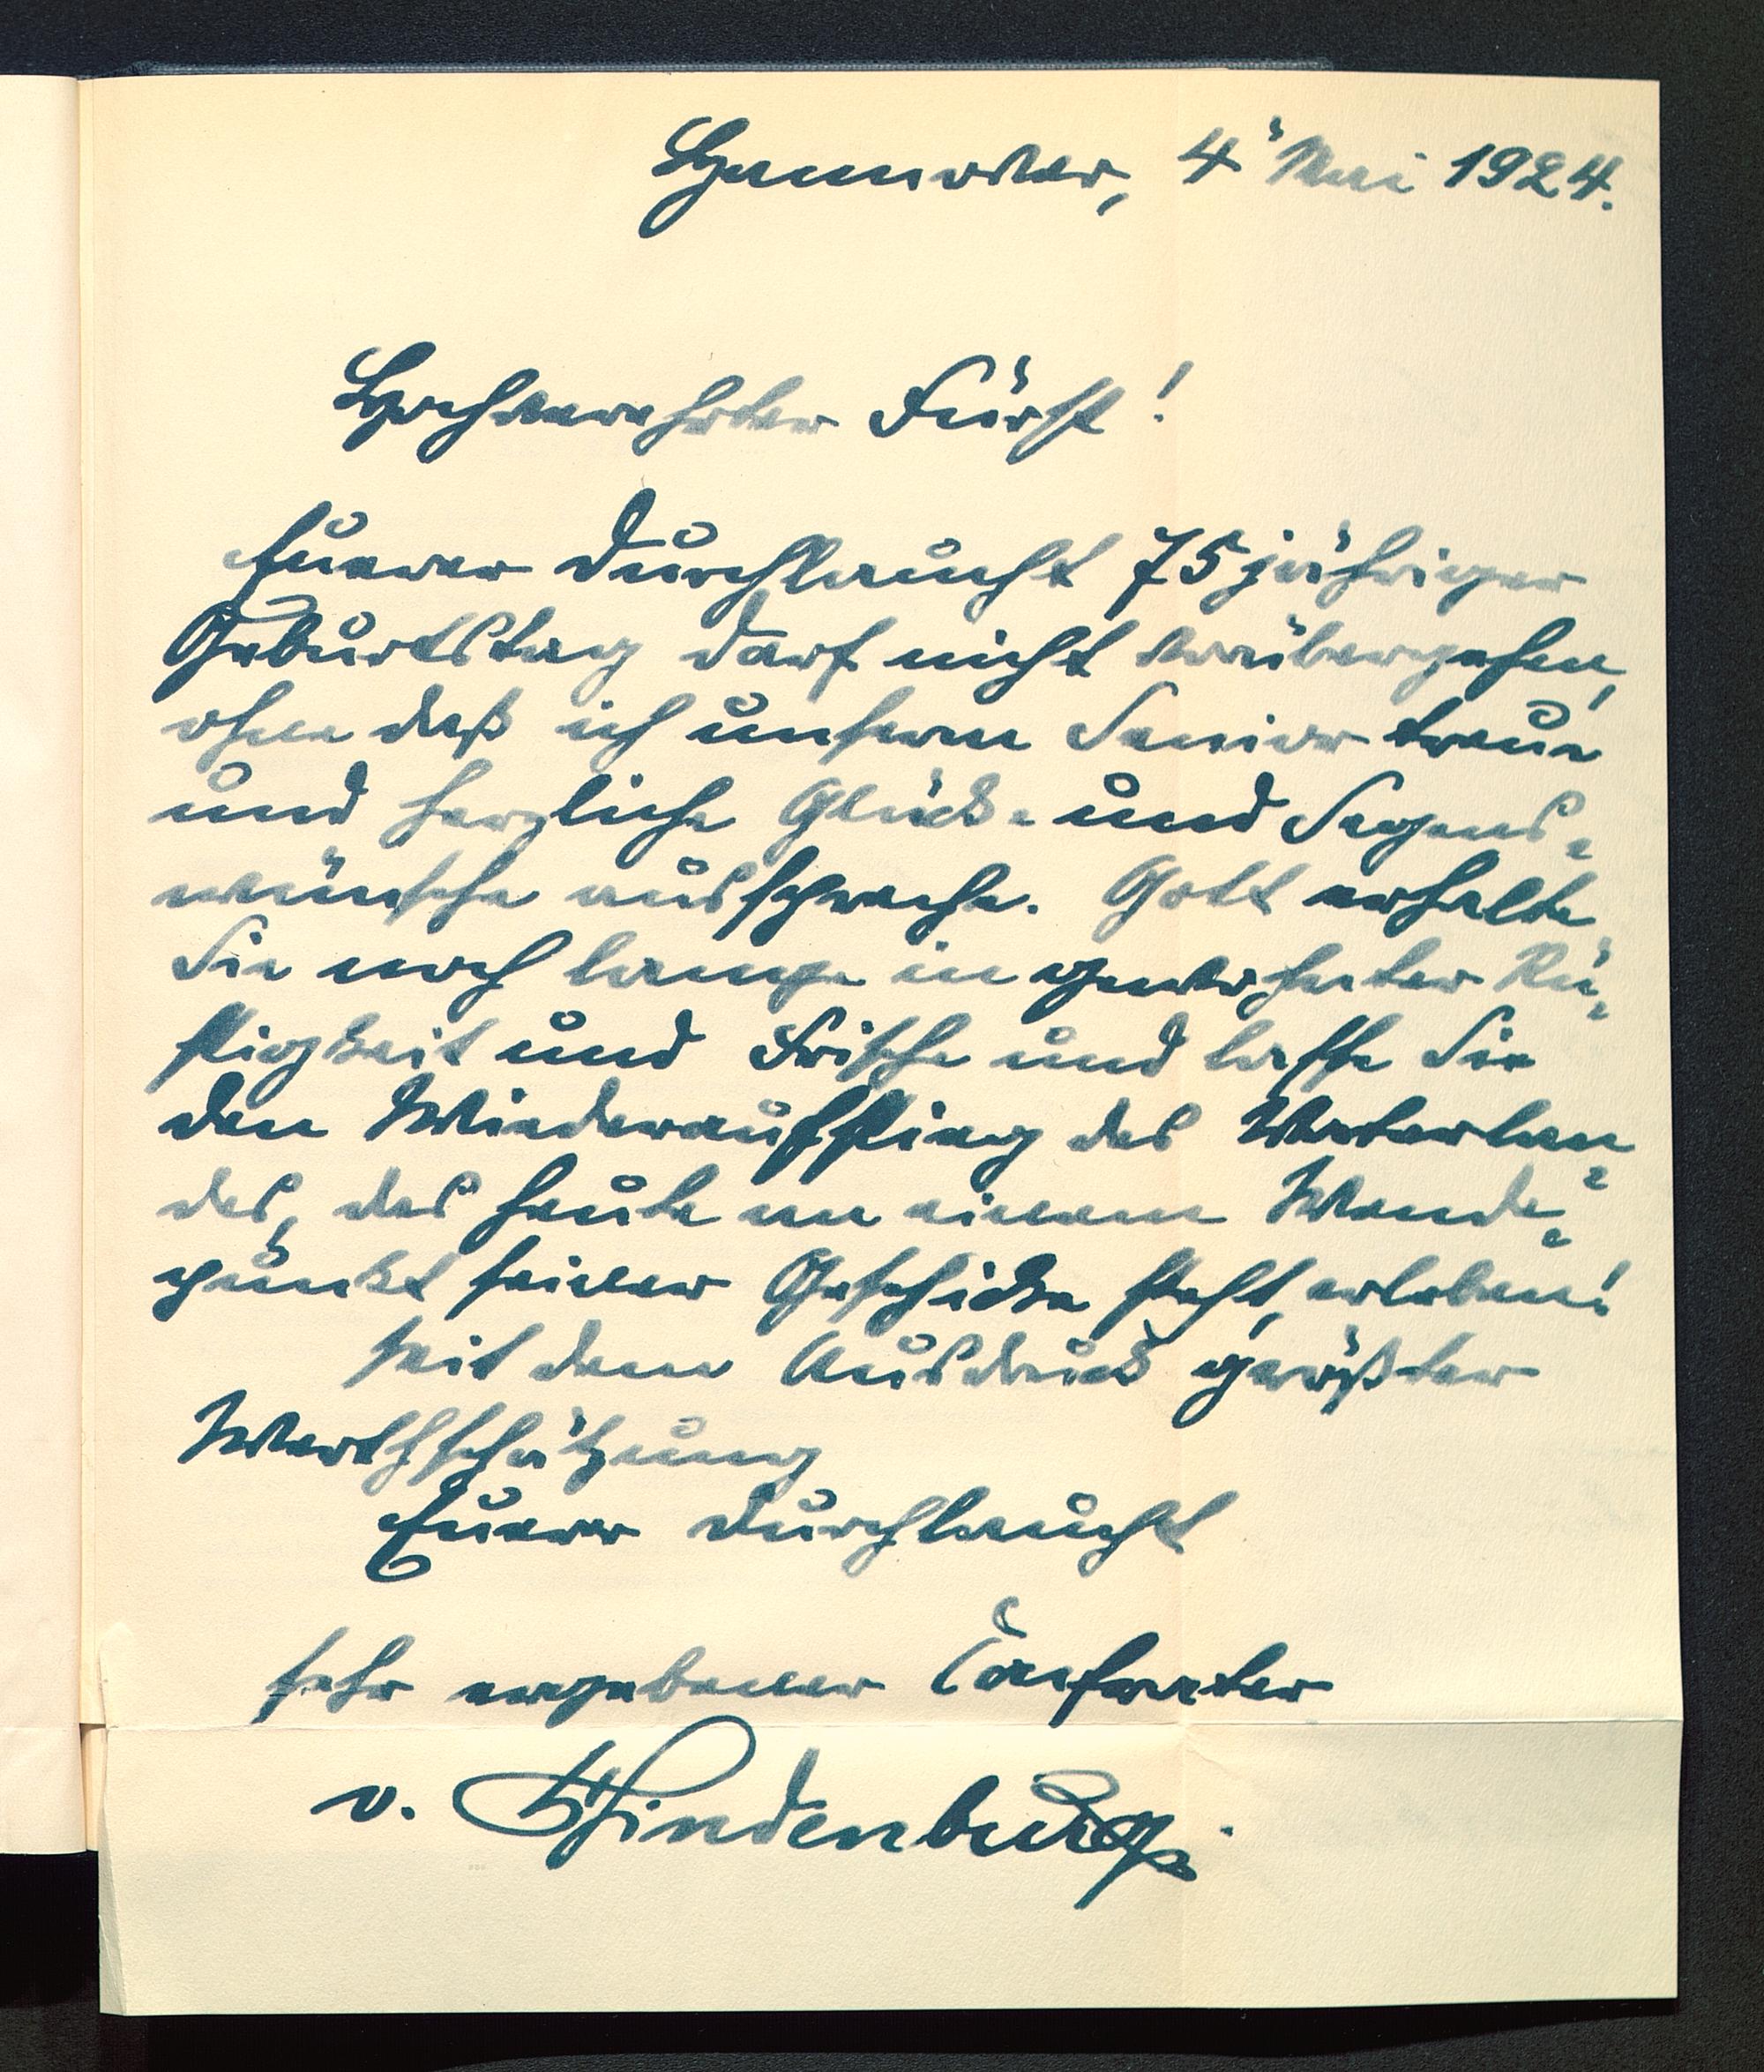 Hannover, 4. Mai 1924.
Hochverehrter Fürst!
Euerer Durchlaucht 75jähriger
Geburtstag darf nicht vorübergehen,
ohne daß ich unserm Senior treue
und herzliche Glück- und Segens-
wünsche ausspreche. Gott erhalte
Sie noch lange in gewohnter Rü-
stigkeit und Frische und lasse Sie
den Wiederaufstieg des Vaterlan-
des, das heute an einem Wende-
punkt seiner Geschicke steht, erleben!
Mit dem Ausdruck größter
Werthschätzung
Euerer Durchlaucht
sehr ergebener
v. Hindenburg.